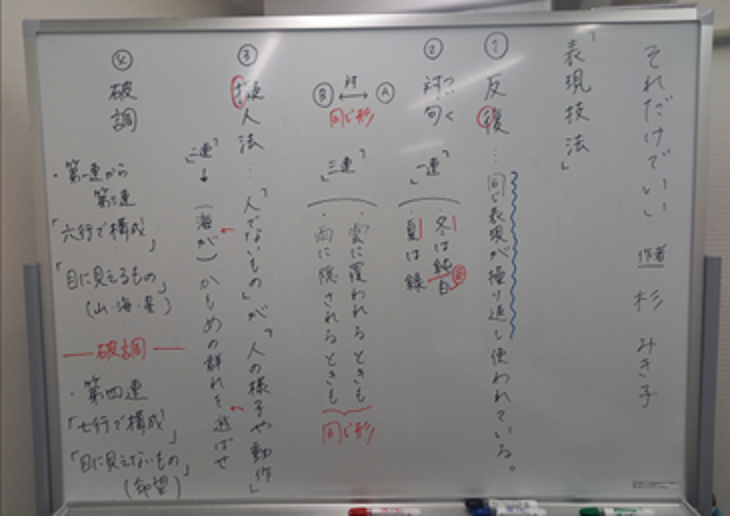 それだけでいい 作者 杉 みき子
「表現技法」
① 反復…同じ表現が繰り返し使われている。
② 対句
つい く
「一連」
・冬は純白
・夏は緑
Ⓐ ↔ Ⓑ
対
同じ形
「三連」
・雲に覆われるときも
・雨に隠されるときも
同じ形
③ 擬人法…「人でないもの」が、「人の様子や動作」
「二連」→(海が)かもめの群れを遊ばせ
④ 破調
・第一連から
第三連
「六行で構成」
「目に見えるもの」
(山・海・星)
破調
・第四連
「七行で構成」
「目に見えないもの」
(希望)